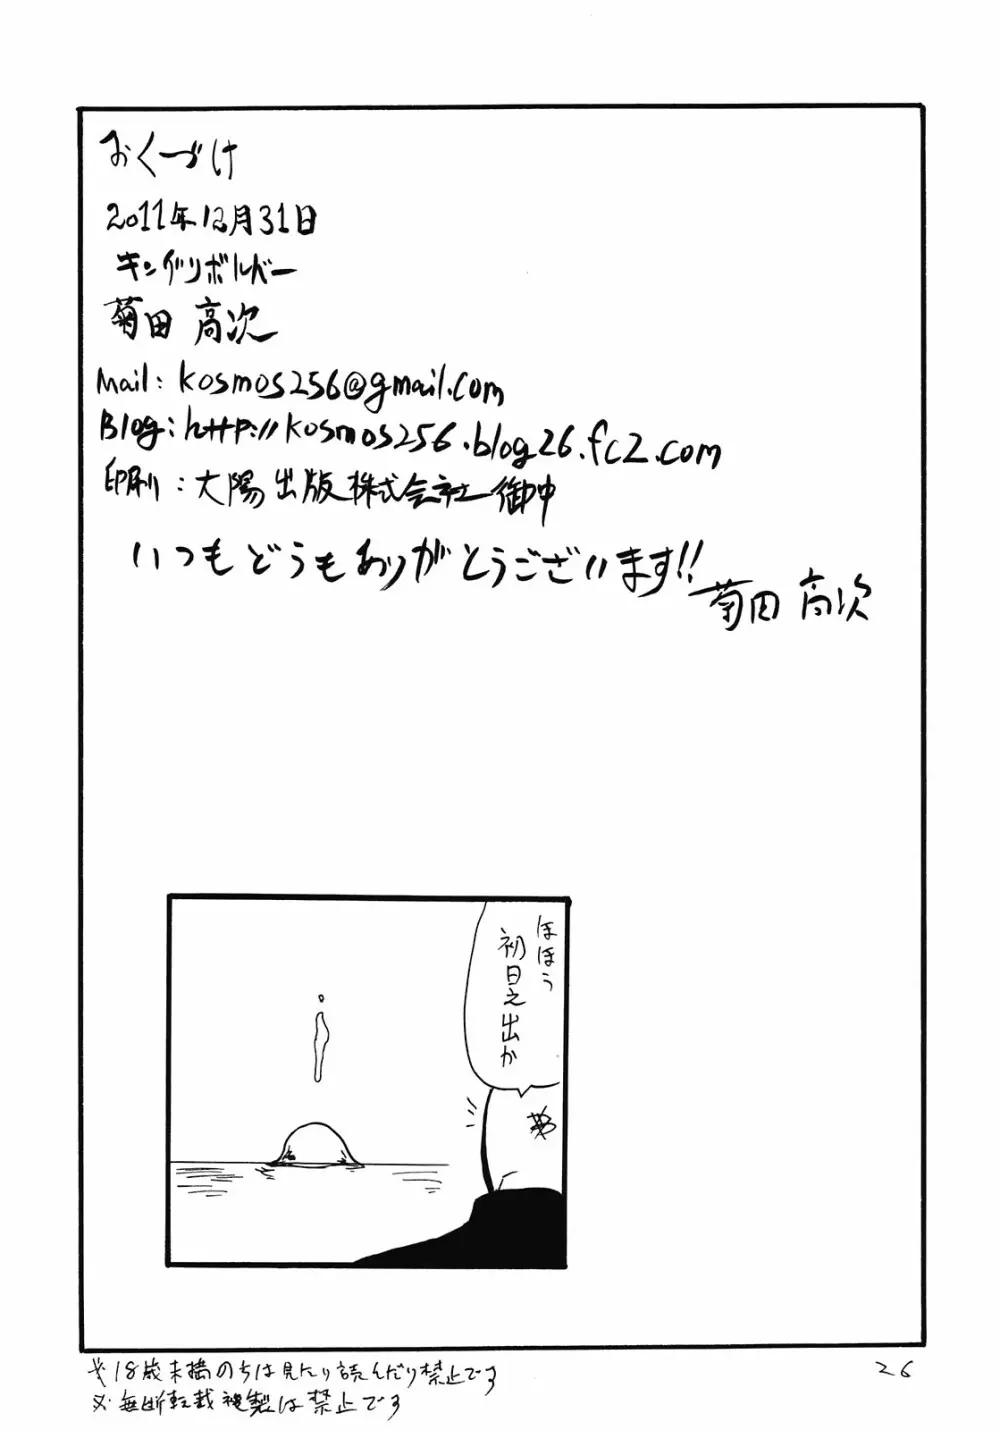 おくづけ
2011年12月31日
キングリボルバー
菊田 高次
Mail: kosmos256@gmail.com
Blog: http://kosmos256.blog26.fc2.com
印刷: 大陽出版株式会社御中
いつもどうもありがとうございます!!
菊田 高次
ほほう
初日之出か
※18歳未満のちは見たり読んだり禁止です
※無断転載複製は禁止です
26